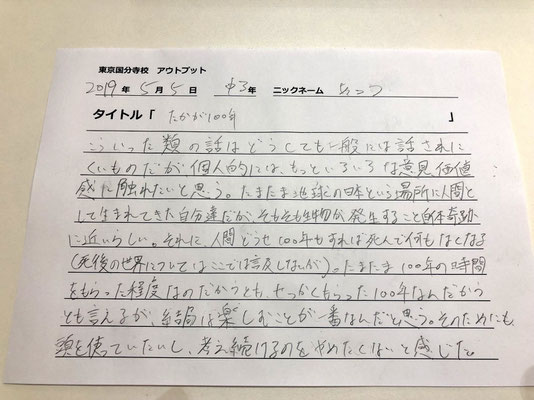 東京国分寺校 アウトプット
2019年 5月 5日 中3年 ニックネーム
タイトル「 たかが100年 」
こういった類の話はどうしても一般には話されに
くいものだが個人的には、もっといろいろな意見価値
感に触れたいと思う。たまたま地球の日本という場所に人間と
して生まれてきた自分達だが、そもそも生物が発生すること自体奇跡
に近いらしい。それに、人間どうせ100年もすれば死んで何もなくなる
(死後の世界についてはここでは言及しないが)。たまたま100年の時間
をもらった程度なのだからとも、せっかくもらった100年なんだから
とも言えるが、結局は楽しむことが一番なんだと思う。そのためにも、
頭を使っていたいし、考え続けるのをやめたくないと感じた。